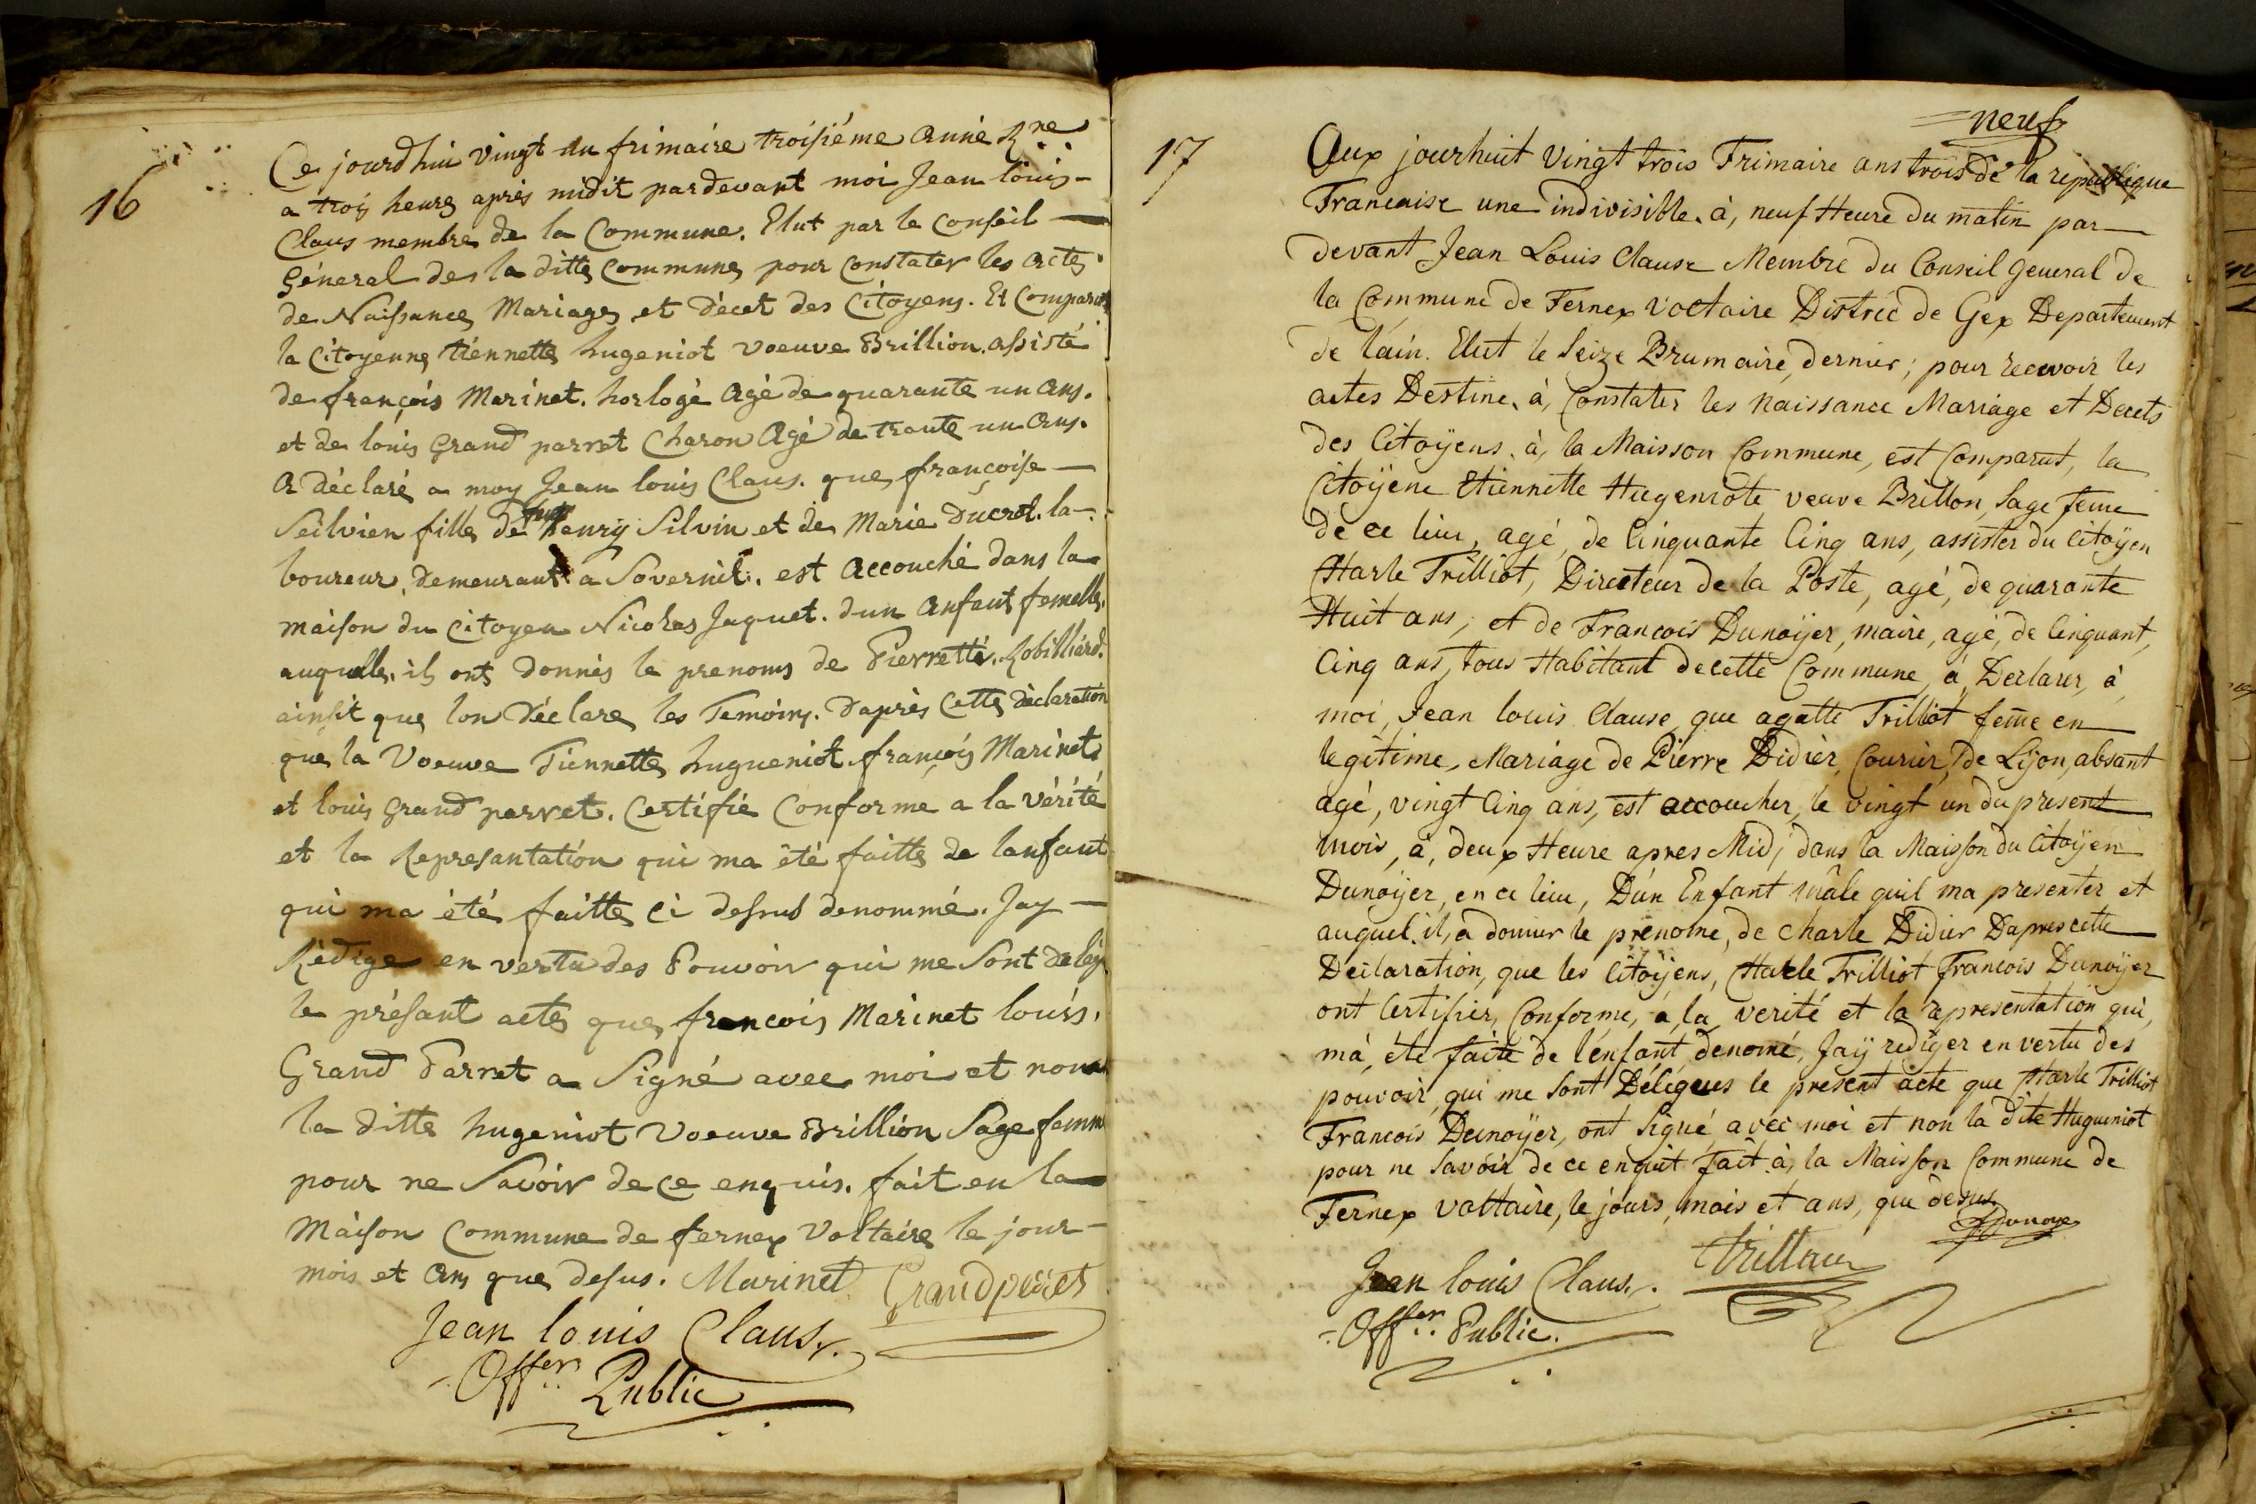 16
Ce jourdhui vingt du frimaire troisiéme anné Rne
a trois heures après midit pardevant moi Jean louis
Claus membre de la Commune. Elut par le Conseil
Géneral de la ditte Commune pour Constater les actes
de Naissance Mariage et décet des Citoyens. Et Comparut
la Citoyenne tiennette hugeniot voeuve Brillion. assisté
de françois Marinet. horlogé agé de quarante un ans.
et de louis Grand parret Charon Agé de trante un ans.
a déclaré a moy Jean louis Claus. que françoise
Seilvien fille de henry Silvin et de Marie Ducrot. la-
boureur, demeurant a Sovernit. est accouché dans la
maison du Citoyen Nicolas Jaquet. dun anfant femelle.
auquelle. il ont donnés le prenoms de Pierrette. Robilliard.
ainsit que lon déclare les Temoins. daprès Cette déclaration
que la Voeuve Tiennette hugueniot françois Marinet
et louis Grand perret. Certifié Conforme a la vérité
et la Represantation qui ma été faitte de lanfant
qui ma été faitte ci desus denommé. Jay
Rédige en vertu des Pouvoir qui me sont delég
le présant acte que francois Marinet louis.
Grand Parret a Signé avec moi et non
la ditte hugeniot Voeuve Brillion Sage femme
pour ne Savoir de ce enquis. fait en la
Maison Commune de fernex Voltaire le jour
mois et ans que desus. Marinet Grandperet
Jean louis Claus.
Offer Public
neuf
17
Aux jourhuit vingt trois Frimaire ans trois de la republique
Francaise une indivisible. à, neuf Heure du matin par
devant Jean Louis Clause Membre du Conseil General de
la Commune de Fernex Voltaire Distric de Gex Departement
de lain. Elut le Seize Brumaire, dernier; pour recevoir les
actes Destine, à, Constater les Naissance Mariage et Decets
des Citoÿens. à, la Maisson Commune, est Comparut, la
Citoÿene Etiennette Hugeniote, veuve Brillon, Sage feme
de ce lieu, agé, de Cinquante Cinq ans, assister du Citoÿen
Charle Trilliot, Directeur de la Poste, agé, de quarante
Huit ans, et de Francois Dunoÿer, maire, agé, de Cinquant,
Cinq ans, tous Habitant decette Commune, a, Declarer, à
moi, Jean louis Clause, que agatte Trilliot feme en
legitime, Mariage de Pierre Didier, Courier, de Lÿon, absant
agé, vingt Cinq ans, est accoucher, le vingt un du present
mois, à, deux Heure apres Midi, dans la Maisson du Citoÿen
Dunoÿer, en ce lieu, Dun Enfant mâle quil ma presenter et
auquel. il, a donner le prenome, de Charle Didier Daprescette
Déclaration, que les Citoÿens, Charle Trilliot Francois Dunoÿer
ont Certifier, Conforme, a, la verité et la representation qui,
ma, éte faite de lénfant, denomé, Jaÿ rediger en vertu des
pouvoir, qui me Sont Délégues le present acte que Charle Trilliot
Francois Dunoÿer, ont Signé avec moi et non la dite Hugueniot
pour ne Savoir de ce enquit fait à, la Maisson Commune de
Fernex Voltaire, le jours, mois et ans, que desus
Dunoye
Jean louis Claus.
Offer Public.